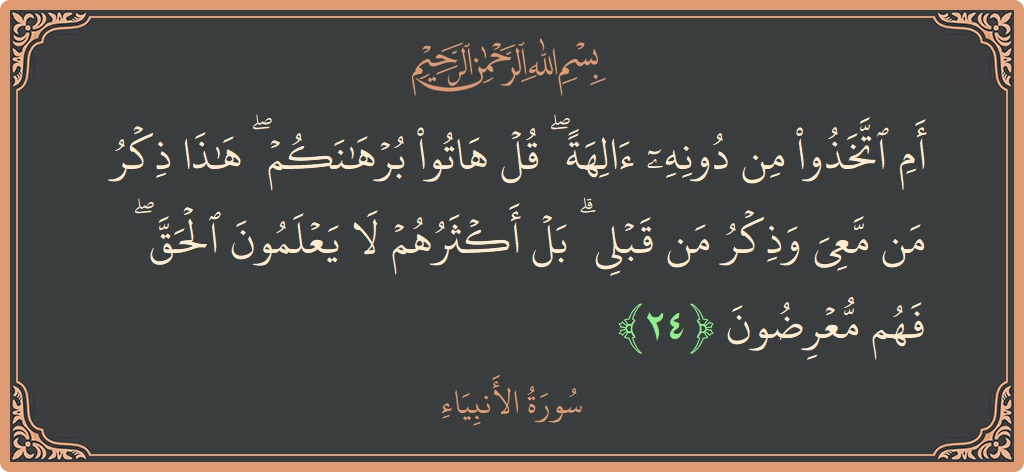 بِسْمِ اللَّهِ الرَّحْمَٰنِ الرَّحِيمِ
أَمِ ٱتَّخَذُوا۟ مِن دُونِهِۦٓ ءَالِهَةً ۖ قُلْ هَاتُوا۟ بُرْهَـٰنَكُمْ ۖ هَـٰذَا ذِكْرُ
مَن مَّعِىَ وَذِكْرُ مَن قَبْلِى ۗ بَلْ أَكْثَرُهُمْ لَا يَعْلَمُونَ ٱلْحَقَّ ۖ
فَهُم مُّعْرِضُونَ ﴿٢٤﴾
سُورَةُ الأَنبِيَاءِ